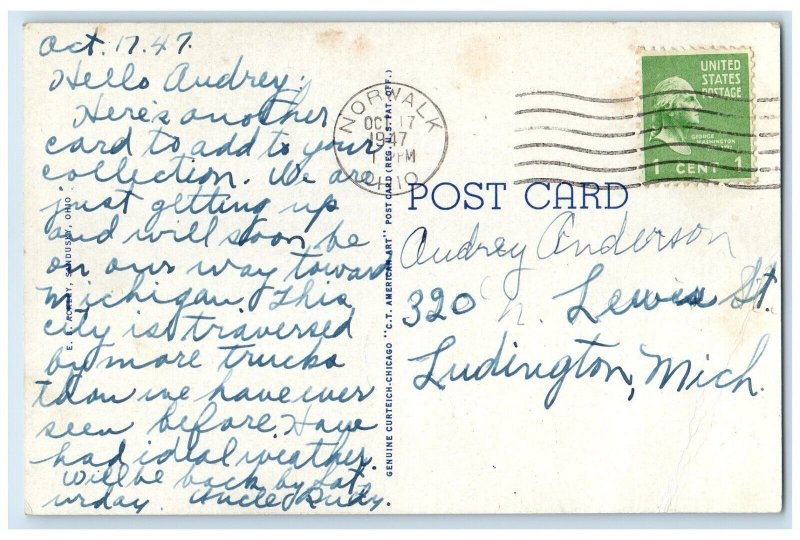 Oct. 17. 47.
Hello Audrey:
Here's another
card to add to your
collection. We are
just getting up
and will soon be
on our way toward
Michigan. This
city is traversed
by more trucks
than we have ever
seen before. Have
had ideal weather.
Will be back by Sat
urday. Uncle Rudy.
SANDUSKY, OHIO
GENUINE CURTEICH-CHICAGO "C.T. AMERICAN ART" POST CARD (REG. U.S. PAT. OFF.)
NORWALK
OCT 17
1947
PM
OHIO
UNITED
STATES
POSTAGE
GEORGE
WASHINGTON
1 CENT 1
POST CARD
Audrey Anderson
320 N. Lewis St.
Ludington, Mich.